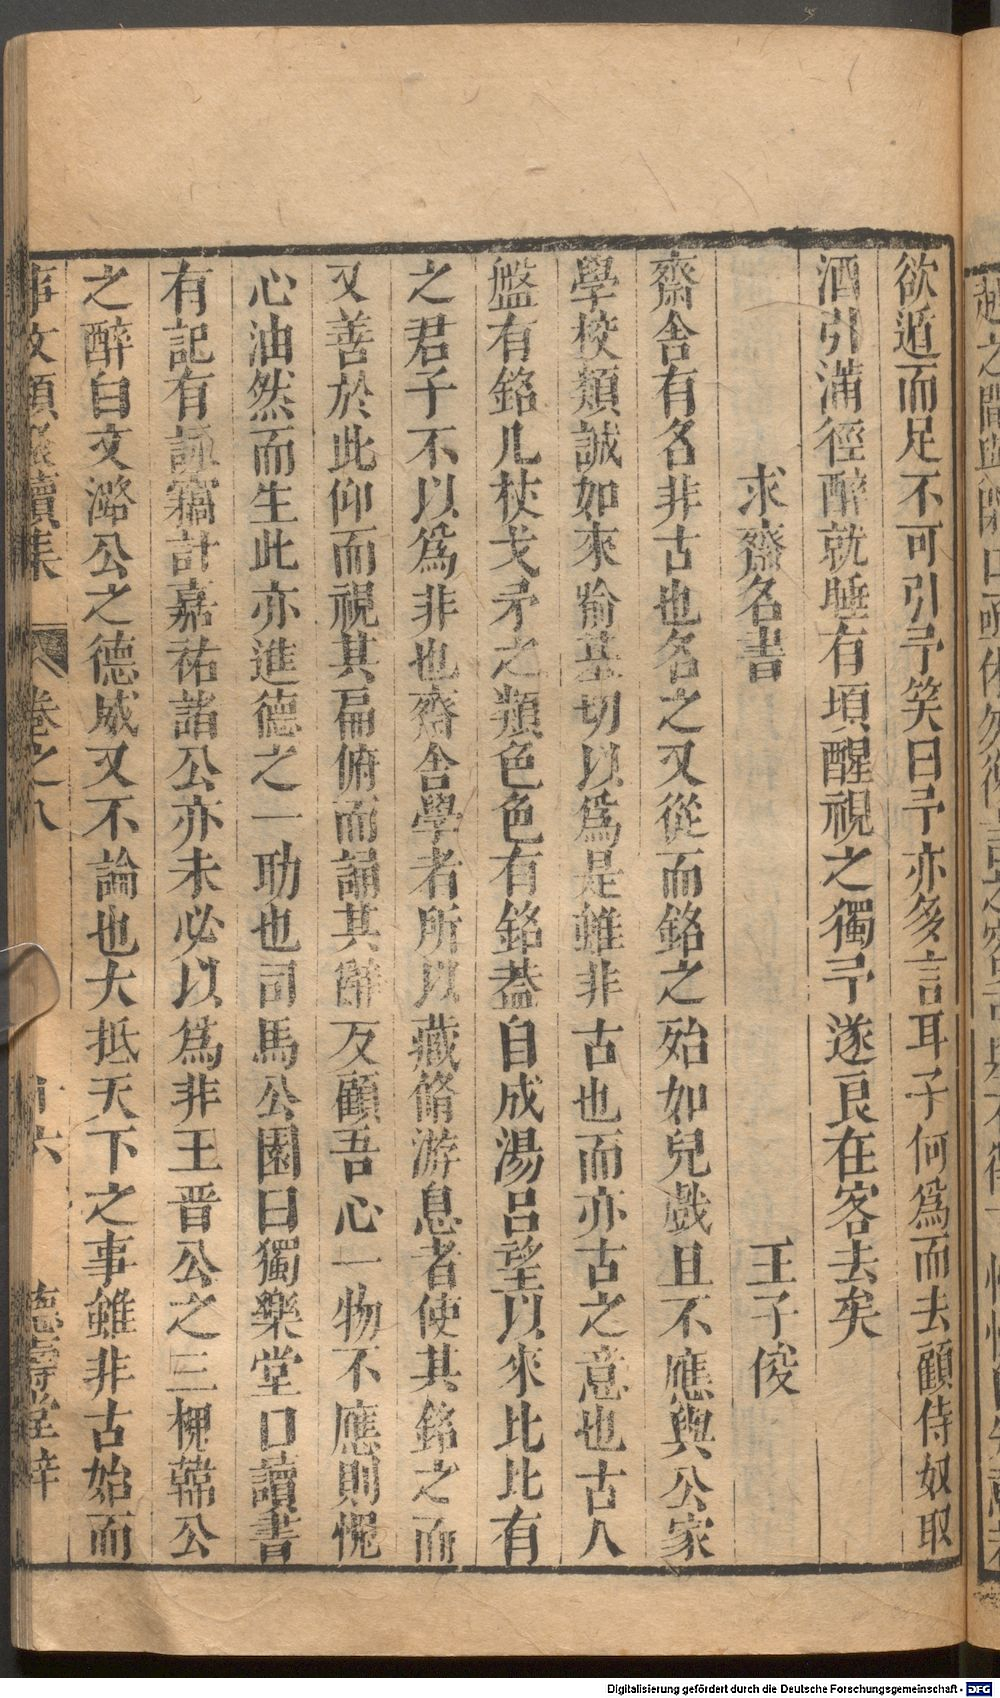 欲遁而足不可引予笑曰予亦多言耳子何爲而去顧侍奴取
酒引滿徑醉就睡有頃醒視之獨予遂良在客去矣
求齋名書 王子俊
齋舍有名非古也名之又從而銘之殆如兒戲且不應與公家
學校類誠如來喻某切以爲是雖非古也而亦古之意也古人
盤有銘几杖戈矛之類色色有銘葢自成湯呂望以來比比有
之君子不以爲非也齋舍學者所以藏脩游息者使其銘之而
又善於此仰而視其扁俯而誦其辭反顧吾心一物不應則愧
心油然而生此亦進德之一助也司馬公園曰獨樂堂曰讀書
有記有謌竊計嘉祐諸公亦未必以爲非王晋公之三槐韓公
之醉白文潞公之德威又不論也大抵天下之事雖非古始而
事文類聚續集 卷之八 六 德壽堂梓
Digitalisierung gefördert durch die Deutsche Forschungsgemeinschaft - DFG